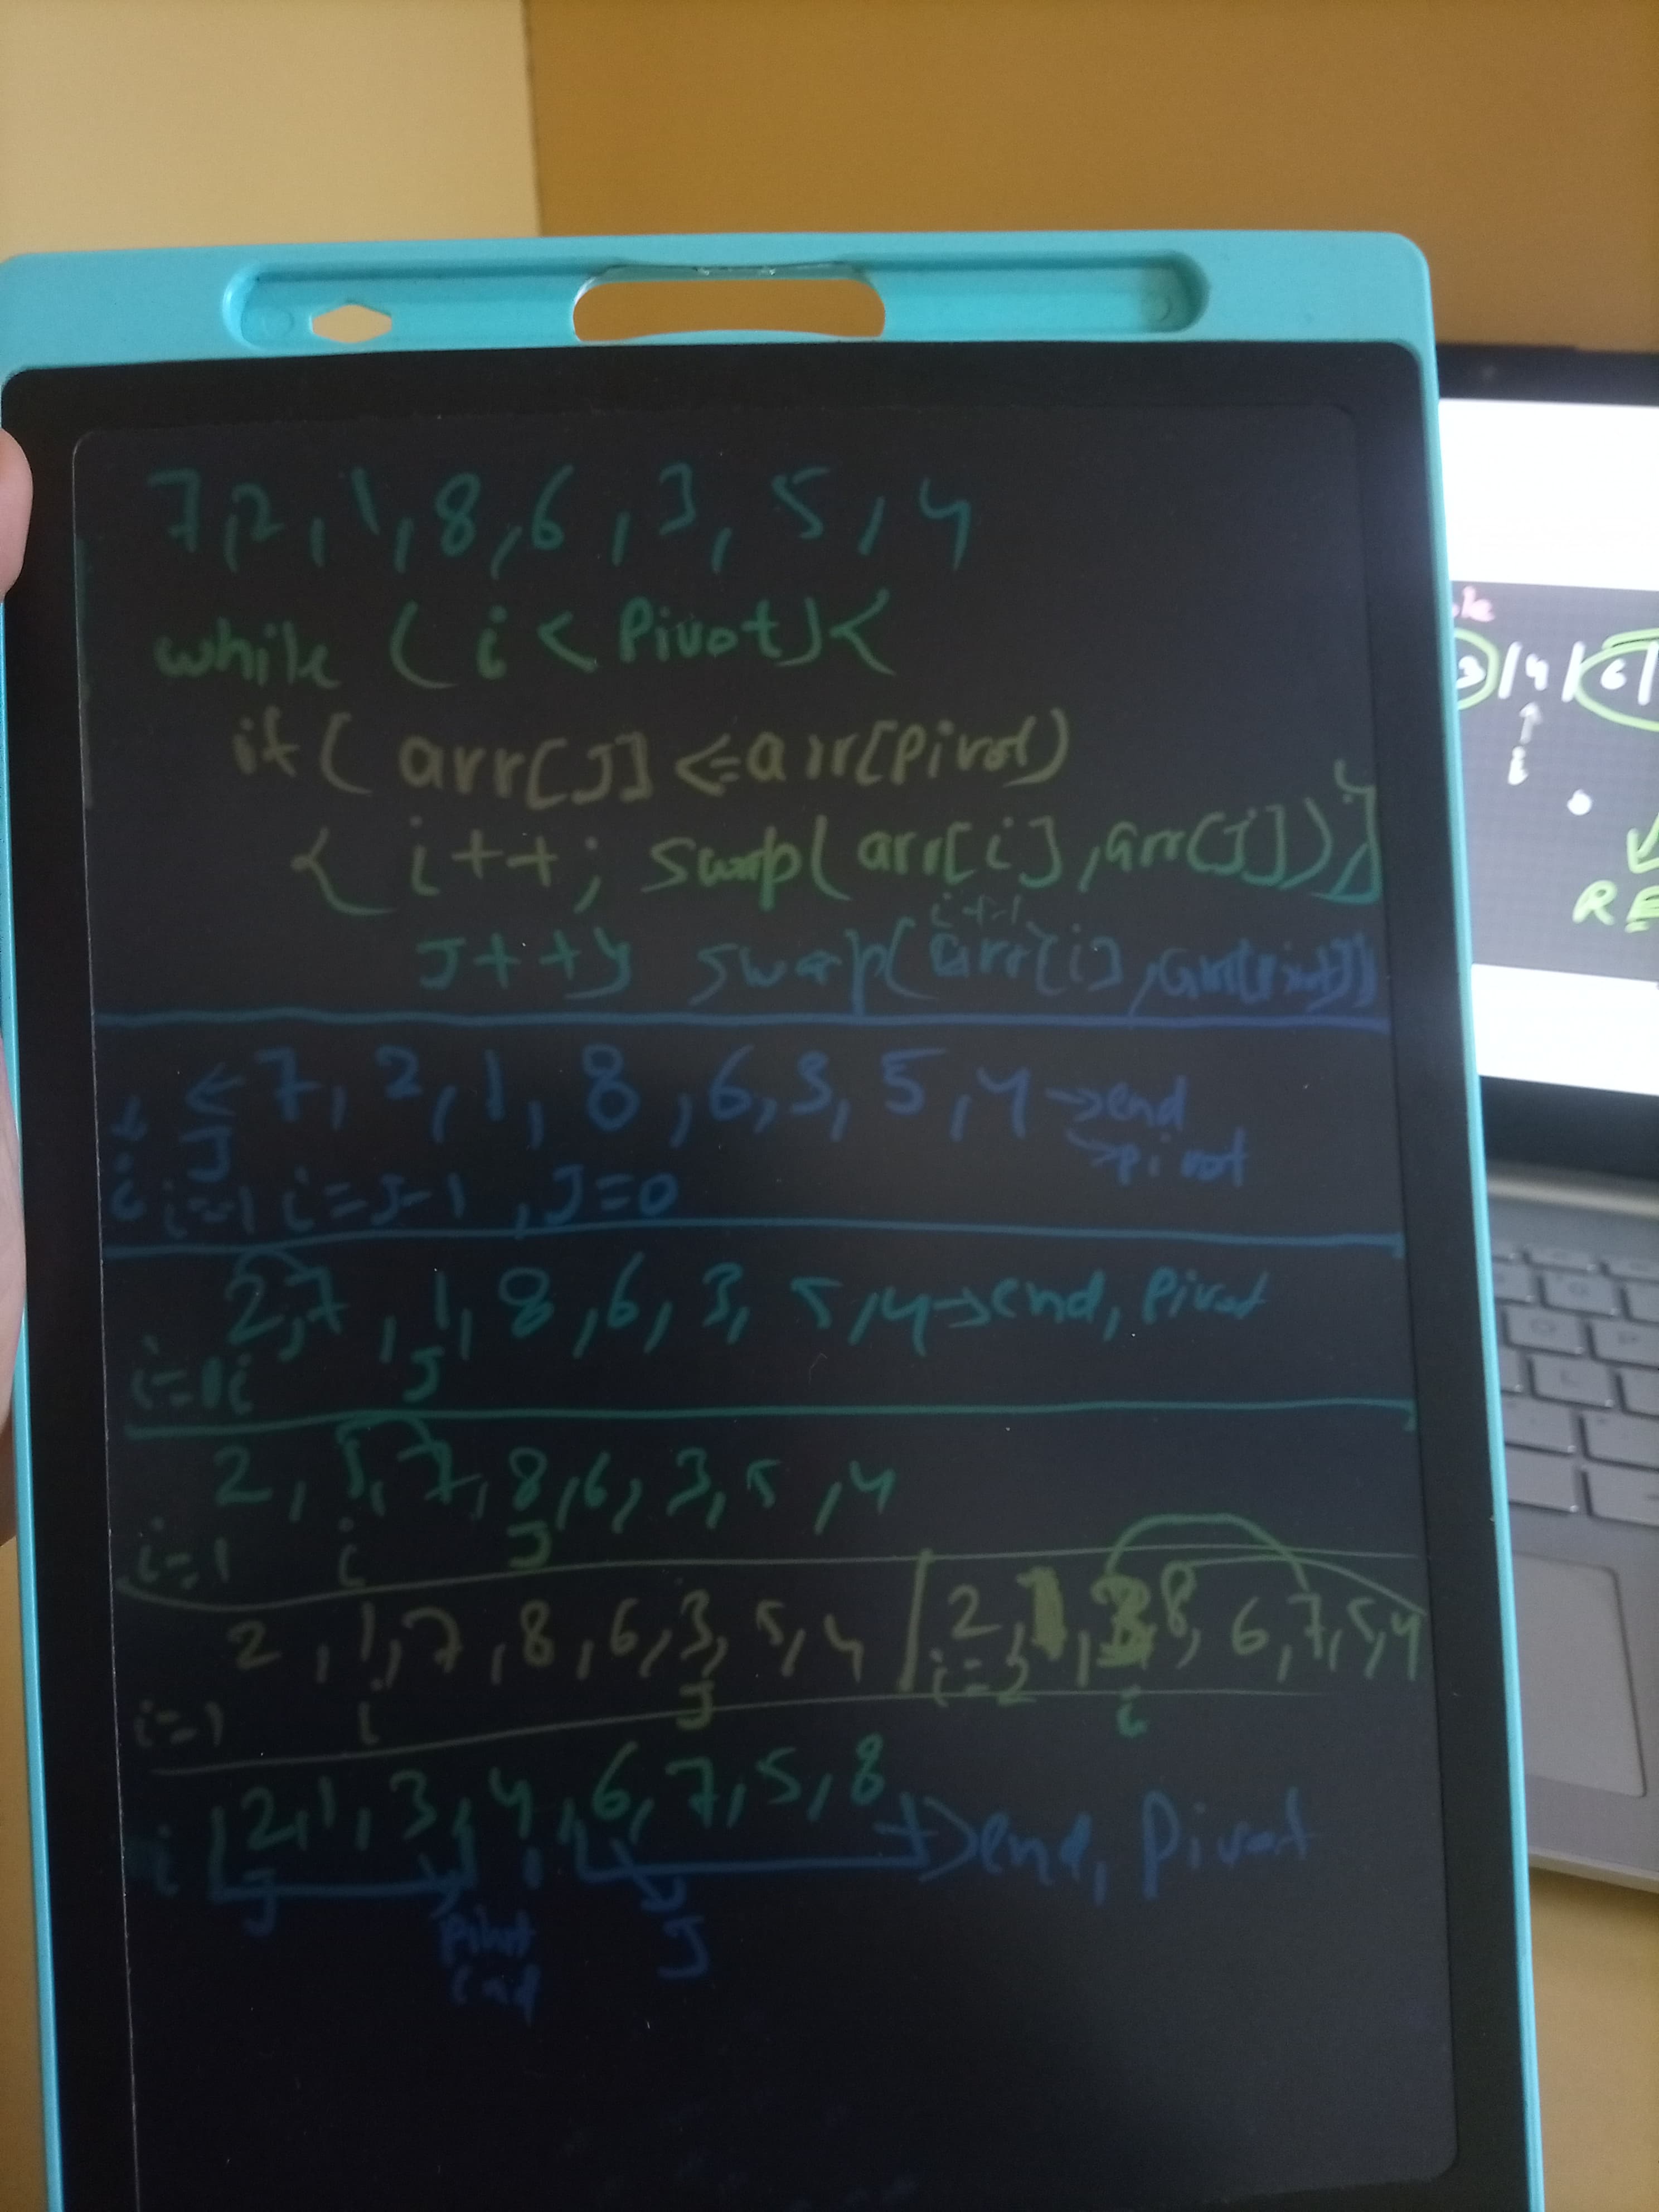 7,2,1,8,6,3,5,4
while (i < Pivot){
if( arr[J] <= arr[Pivot)
{ i++; swap(arr[i],arr[J])};
J++} swap(arr[i],arr[Pivot])
i++
i ← 7, 2, 1, 8, 6, 3, 5, 4 → end
J → pivot
i i=-1 i=J-1, J=0
2,7,1,8,6,3,5,4→end, Pivot
i= i J
2,1,7,8,6,3,5,4
i=1 i J
2,1,7,8,6,3,5,4 | 2,1,3,8,6,7,5,4
i=1 i J i=2 i
2,1,3,4,6,7,5,8
i J → end, Pivot
pivot J
end
3 | 4 | 6 |
i
RE